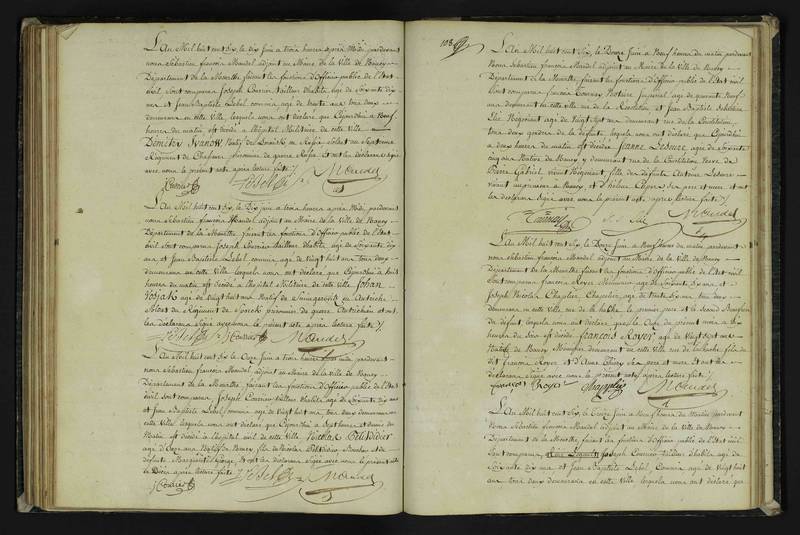 L'An Mil huit cent Six, le dix Juin a trois heures après Midi, pardevant
nous Sébastien françois Mandel adjoint au Maire de la Ville de Nancy
Département de la Meurthe faisant les fonctions d'Officier public de l'Etat
civil Sont comparus Joseph Courier tailleur d'habits, age de Soixante dix
ans et Jean Baptiste Lebel commis age de vingt huit ans tous deux
demeurans en cette Ville lesquels nous ont déclaré que Cejourd'hui à Neuf
heures du matin est décédé a l'hôpital Militaire de cette ville
Demitry Iwanow Natif de en Russie Soldat au Septieme
Régiment de Chasseur prisonnier de guerre Russe Et ont les déclarans Signé
avec nous le présent acte après lecture faite
Courier Lebel Mandel
L'An Mil huit cent Six, le Dix Juin a trois heures après Midi pardevant
nous Sébastien françois Mandel adjoint au Maire de la Ville de Nancy
Département de la Meurthe faisant les fonctions d'Officier public de l'Etat
civil Sont comparus Joseph Courier tailleur d'habits, age de Soixante dix
ans et Jean Baptiste Lebel, commis age de vingt huit ans tous deux
demeurans en cette Ville lesquels nous ont déclaré que Cejourd'hui à huit
heures du matin est décédé a l'hopital Militaire de cette ville Johan
age de vingt huit ans Natif de en Autriche
Soldat du Régiment de prisonnier de guerre Autrichien et ont
les déclarans Signé avec nous le présent acte après lecture faite
Lebel Courier Mandel
L'An Mil huit cent Six le Onze Juin a trois heures pardevant
nous Sébastien françois Mandel, adjoint au Maire de la ville de Nancy
Département de la Meurthe, faisant les fonctions d'Officier public de l'Etat
civil Sont comparus Joseph Courier tailleur d'habits age de Soixante dix ans
et Jean Baptiste Lebel, commis age de vingt huit ans tous deux demeurans en
cette Ville, lesquels nous ont déclaré que Cejourd'hui à Sept heures et demie du
Matin est décédé à l'hospice civil de cette Ville Nicolas
age d'Onze ans Natif de Nancy fils de Nicolas et de
défunte Marguerite Et ont les déclarans Signé avec nous le présent acte
de Décès, après lecture faite
Courier Lebel Mandel
108
L'An Mil huit cent Six, le Douze Juin a Neuf heures du matin pardevant
Nous Sébastien françois Mandel adjoint au Maire de la Ville de Nancy
Département de la Meurthe faisant les fonctions d'Officier public de l'Etat civil
Sont comparus françois Notaire Impérial age de quarante Neuf
ans demeurant en cette ville rue de la et Jean Baptiste
Négociant age de Vingt Sept ans demeurant rue de la Constitution
tous deux gendres de la défunte, lesquels nous ont déclaré que Cejourd'hui
a deux heures du matin est décédée Jeanne Lesoure, age de Soixante
cinq ans Native de Nancy y demeurant rue de la Constitution Veuve de
Pierre Gabriel, vivant Négociant fille des défunts Antoine Lesoure
vivant a Nancy, et d' ses pere et mere et ont
les déclarans Signé avec nous le présent acte, après lecture faite
Mandel
L'An Mil huit cent Six, le Douze Juin a Neuf heures du matin pardevant
nous Sébastien françois Mandel, adjoint au Maire de la ville de Nancy
Département de la Meurthe, faisant les fonctions d'Officier public de l'Etat civil
Sont comparus françois Royer Menuisier age de Soixante ans et
Joseph Nicolas Chapelier, age de trente Six ans tous deux
demeurans en cette Ville rue de la le premier pere et le Second
du défunt lesquels nous ont déclaré que le Onze du présent mois à Six
heures du Soir est décédé françois Royer age de Vingt Sept ans
Natif de Nancy Menuisier demeurant en cette Ville rue fils du
dit françois Royer et d'Anne ses pere et mere Et ont les
déclarans Signé avec nous le présent acte après lecture faite
françois Royer Mandel
L'An Mil huit cent Six, le Treize Juin à Neuf heures du Matin pardevant
Nous Sébastien françois Mandel adjoint au Maire de la Ville de Nancy
Département de la Meurthe, faisant les fonctions d'Officier public de l'Etat civil
Sont comparus, Joseph Courier tailleur d'habits age de
Soixante dix ans et Jean Baptiste Lebel, Commis age de Vingt huit
ans tous deux demeurans en cette Ville lesquels nous ont déclaré que